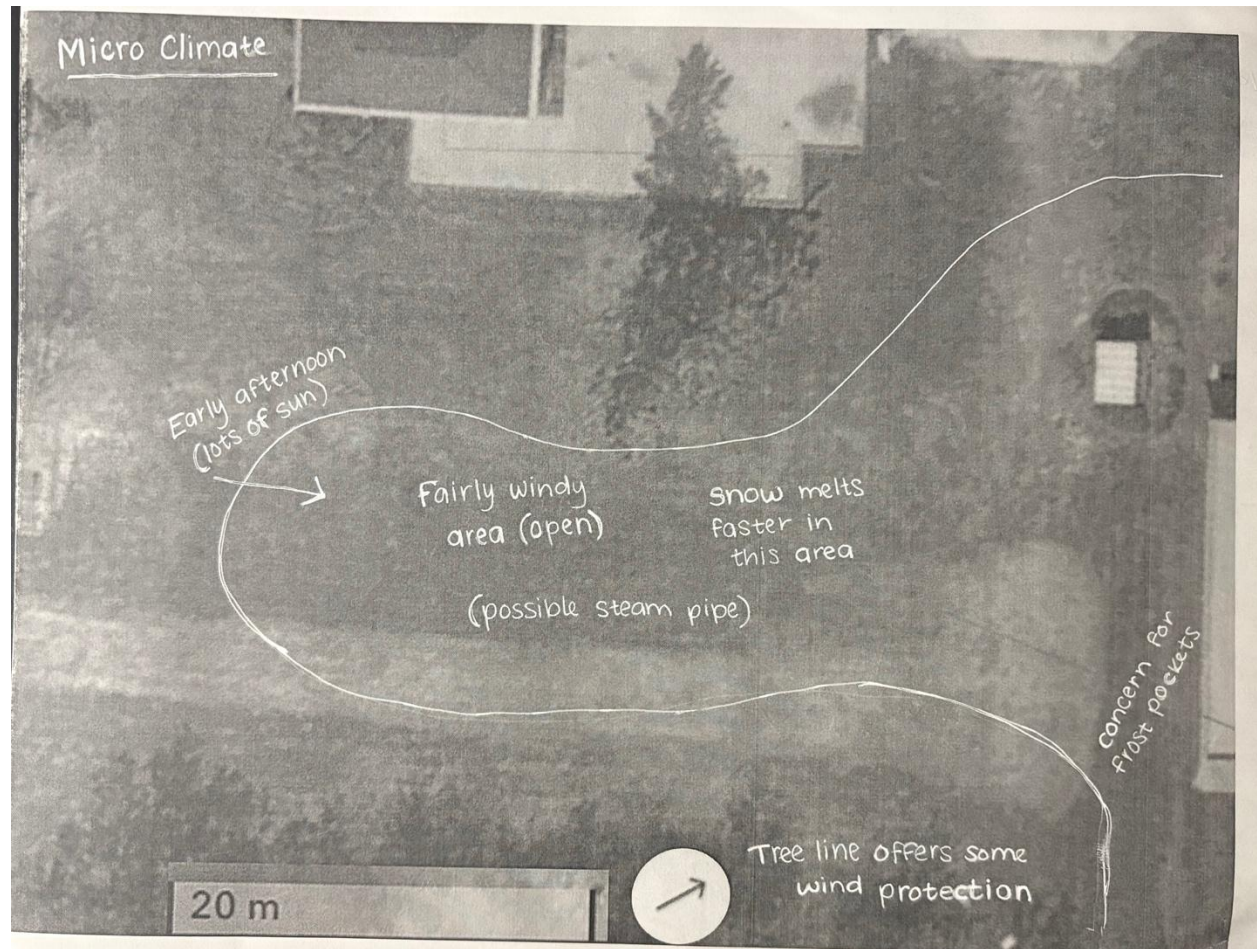 Micro Climate
Early afternoon
(lots of sun)
Fairly windy
area (open)
Snow melts
faster in
this area
(possible steam pipe)
concern for
frost pockets
Tree line offers some
wind protection
20 m